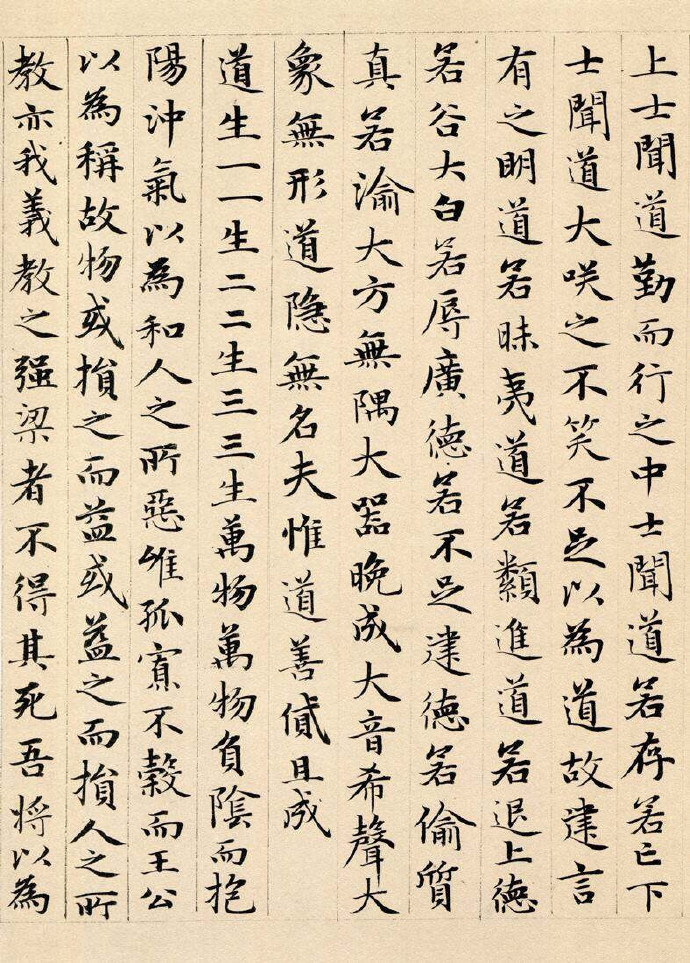 上士聞道勤而行之中士聞道若存若亡下
士聞道大咲之不笑不足以為道故建言
有之明道若昧夷道若纇進道若退上德
若谷大白若辱廣德若不足建德若偷質
真若渝大方無隅大器晚成大音希聲大
象無形道隱無名夫惟道善貸且成
道生一一生二二生三三生萬物萬物負陰而抱
陽沖氣以為和人之所惡唯孤寡不穀而王公
以為稱故物或損之而益或益之而損人之所
教亦我義教之强梁者不得其死吾將以為